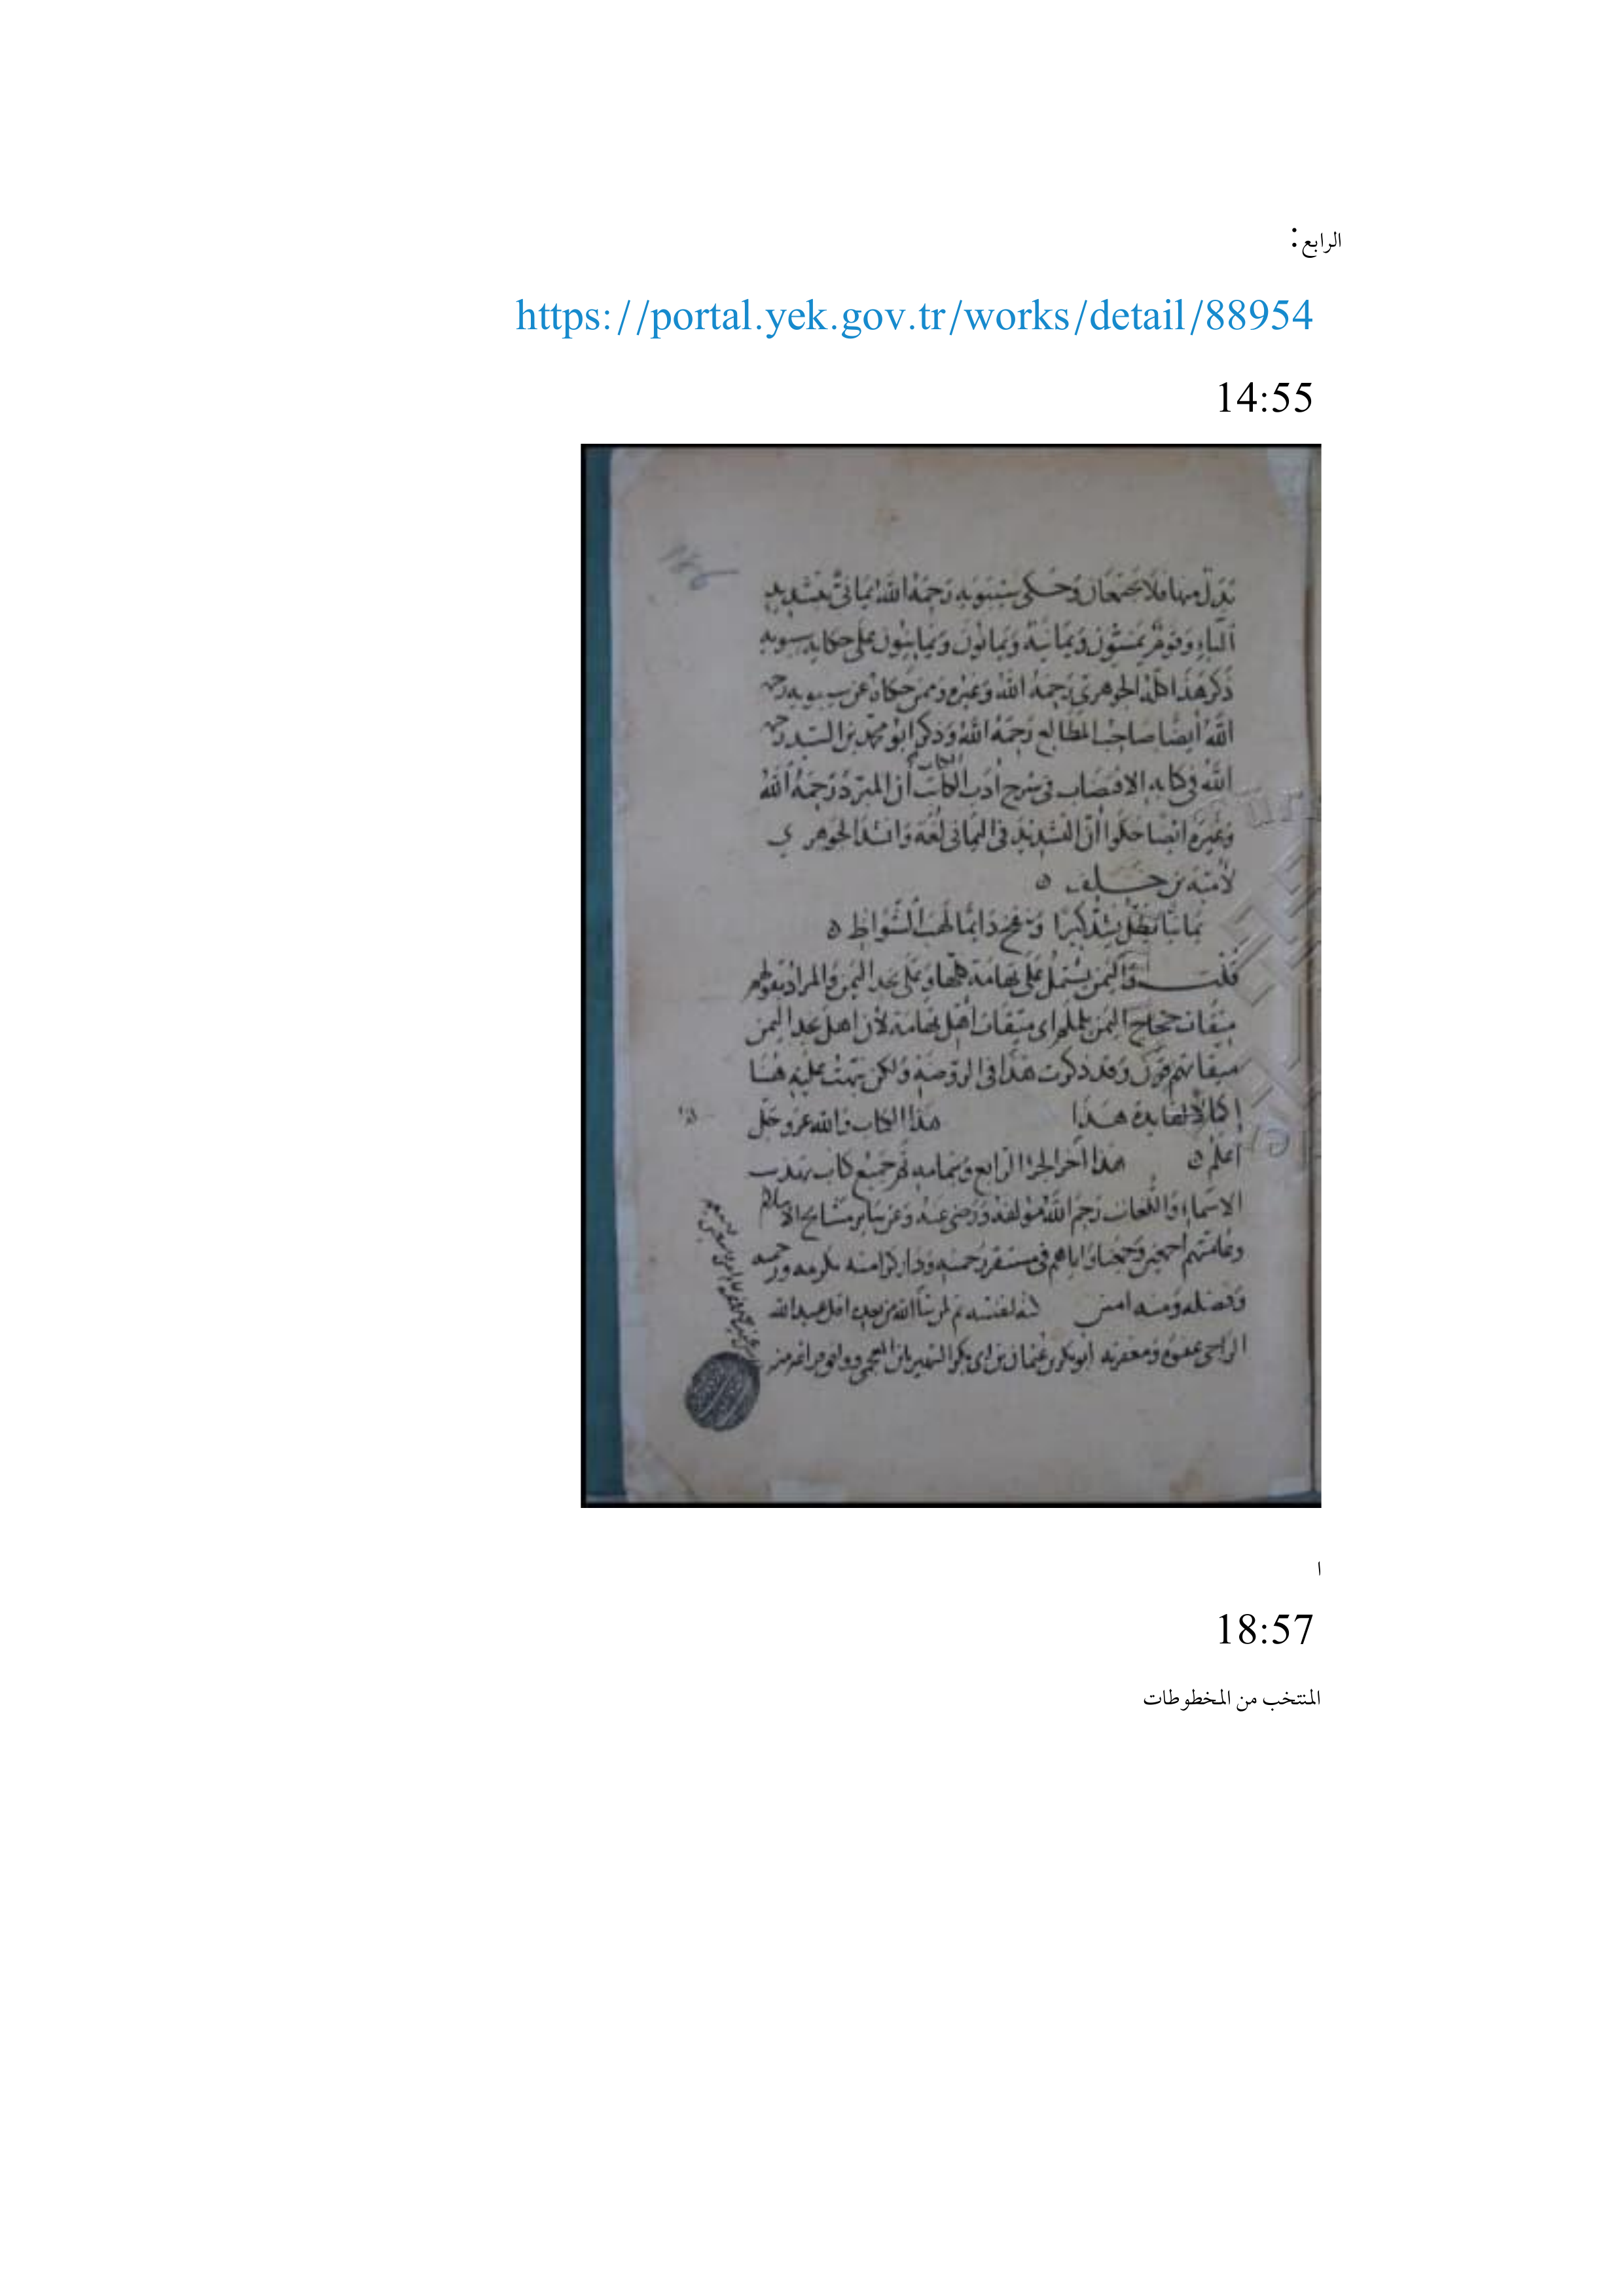 الرابع:
https://portal.yek.gov.tr/works/detail/88954
14:55
تبدل منها فلا يجتمعان وحكى سيبويه رحمه الله يماني بتشديد
الياء وقوم يمنيون ويمانية ويمانون ويمانيون على حكاية سيبويه
ذكر هذا كله الجوهري رحمه الله وغيره وممن حكاه عن سيبويه رحمه
الله أيضا صاحب المطالع رحمه الله وذكر ابو محمد بن السيد رحمه
الله في كتابه الاقتضاب في شرح أدب الكاتب أن المبرد رحمه الله
وغيره ايضا حكوا أن التشديد في اليماني لغة وانشد الجوهري
لأمية بن خلف ه
يمانيا يظل يشد كيرا وينفخ دايما لهب الشواظ ه
قلت واليمن يشتمل على تهامة كلها وعلى نجد اليمن والمراد بقولهم
ميقات حجاج اليمن يلملم اي ميقات أهل تهامة لأن اهل نجد اليمن
ميقاتهم قرن وقد ذكرت هذا في الروضة ولكن نبهت عليه هنا
إكمالا لفايدة هذا هذا الكتاب والله عز وجل
أعلم ه هذا آخر الجزء الرابع وبتمامه تم جميع كتاب تهذيب
الاسماء واللغات رحم الله مؤلفه ورضي عنه وعن ساير مشايخ الاسلام
وعامتهم أجمعين وجمعنا واياهم في مستقر رحمته ودار كرامته بكرمه ورحمته
وفضله ومنه امين لنفسه ثم لمن شا الله من بعده اقل عبيد الله
الراجي عفوه ومغفرته ابو بكر بن عثمان بن ابي بكر الشهير بابن العجمي
ا
18:57
المنتخب من المخطوطات